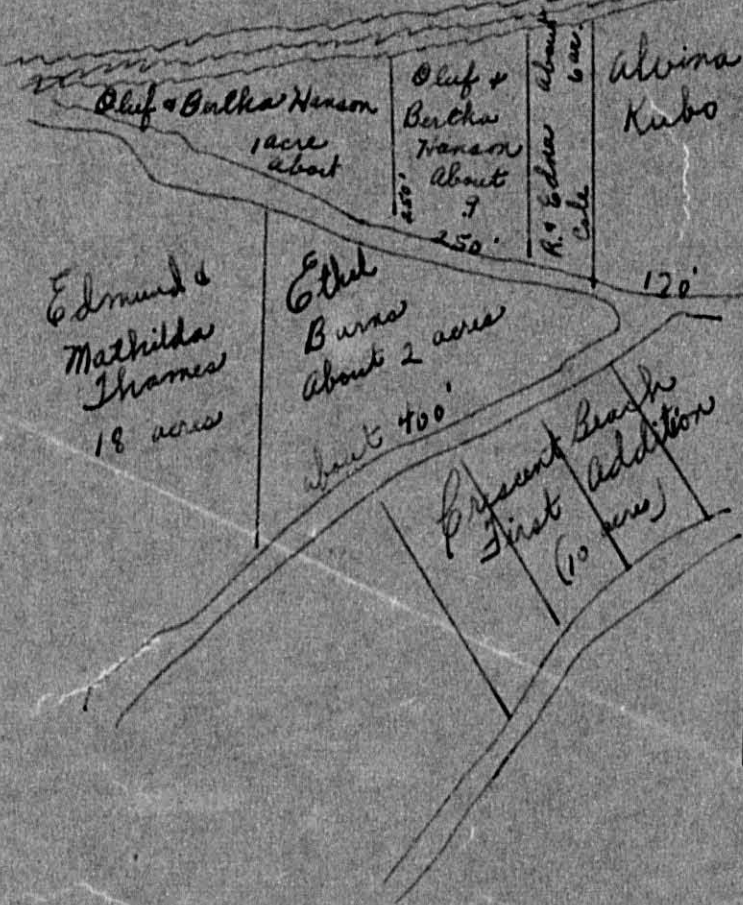 Oluf & Bertha Hanson
1 acre
about
250'
Oluf &
Bertha
Hanson
About
.9
250'
R. & Edna
Cole
about
6 ac.
Alvina
Kubo
120'
Edmund &
Mathilda
Thames
18 acres
Ethel
Burns
About 2 acres
about 400'
Crescent Beach
First Addition
(10 acres)